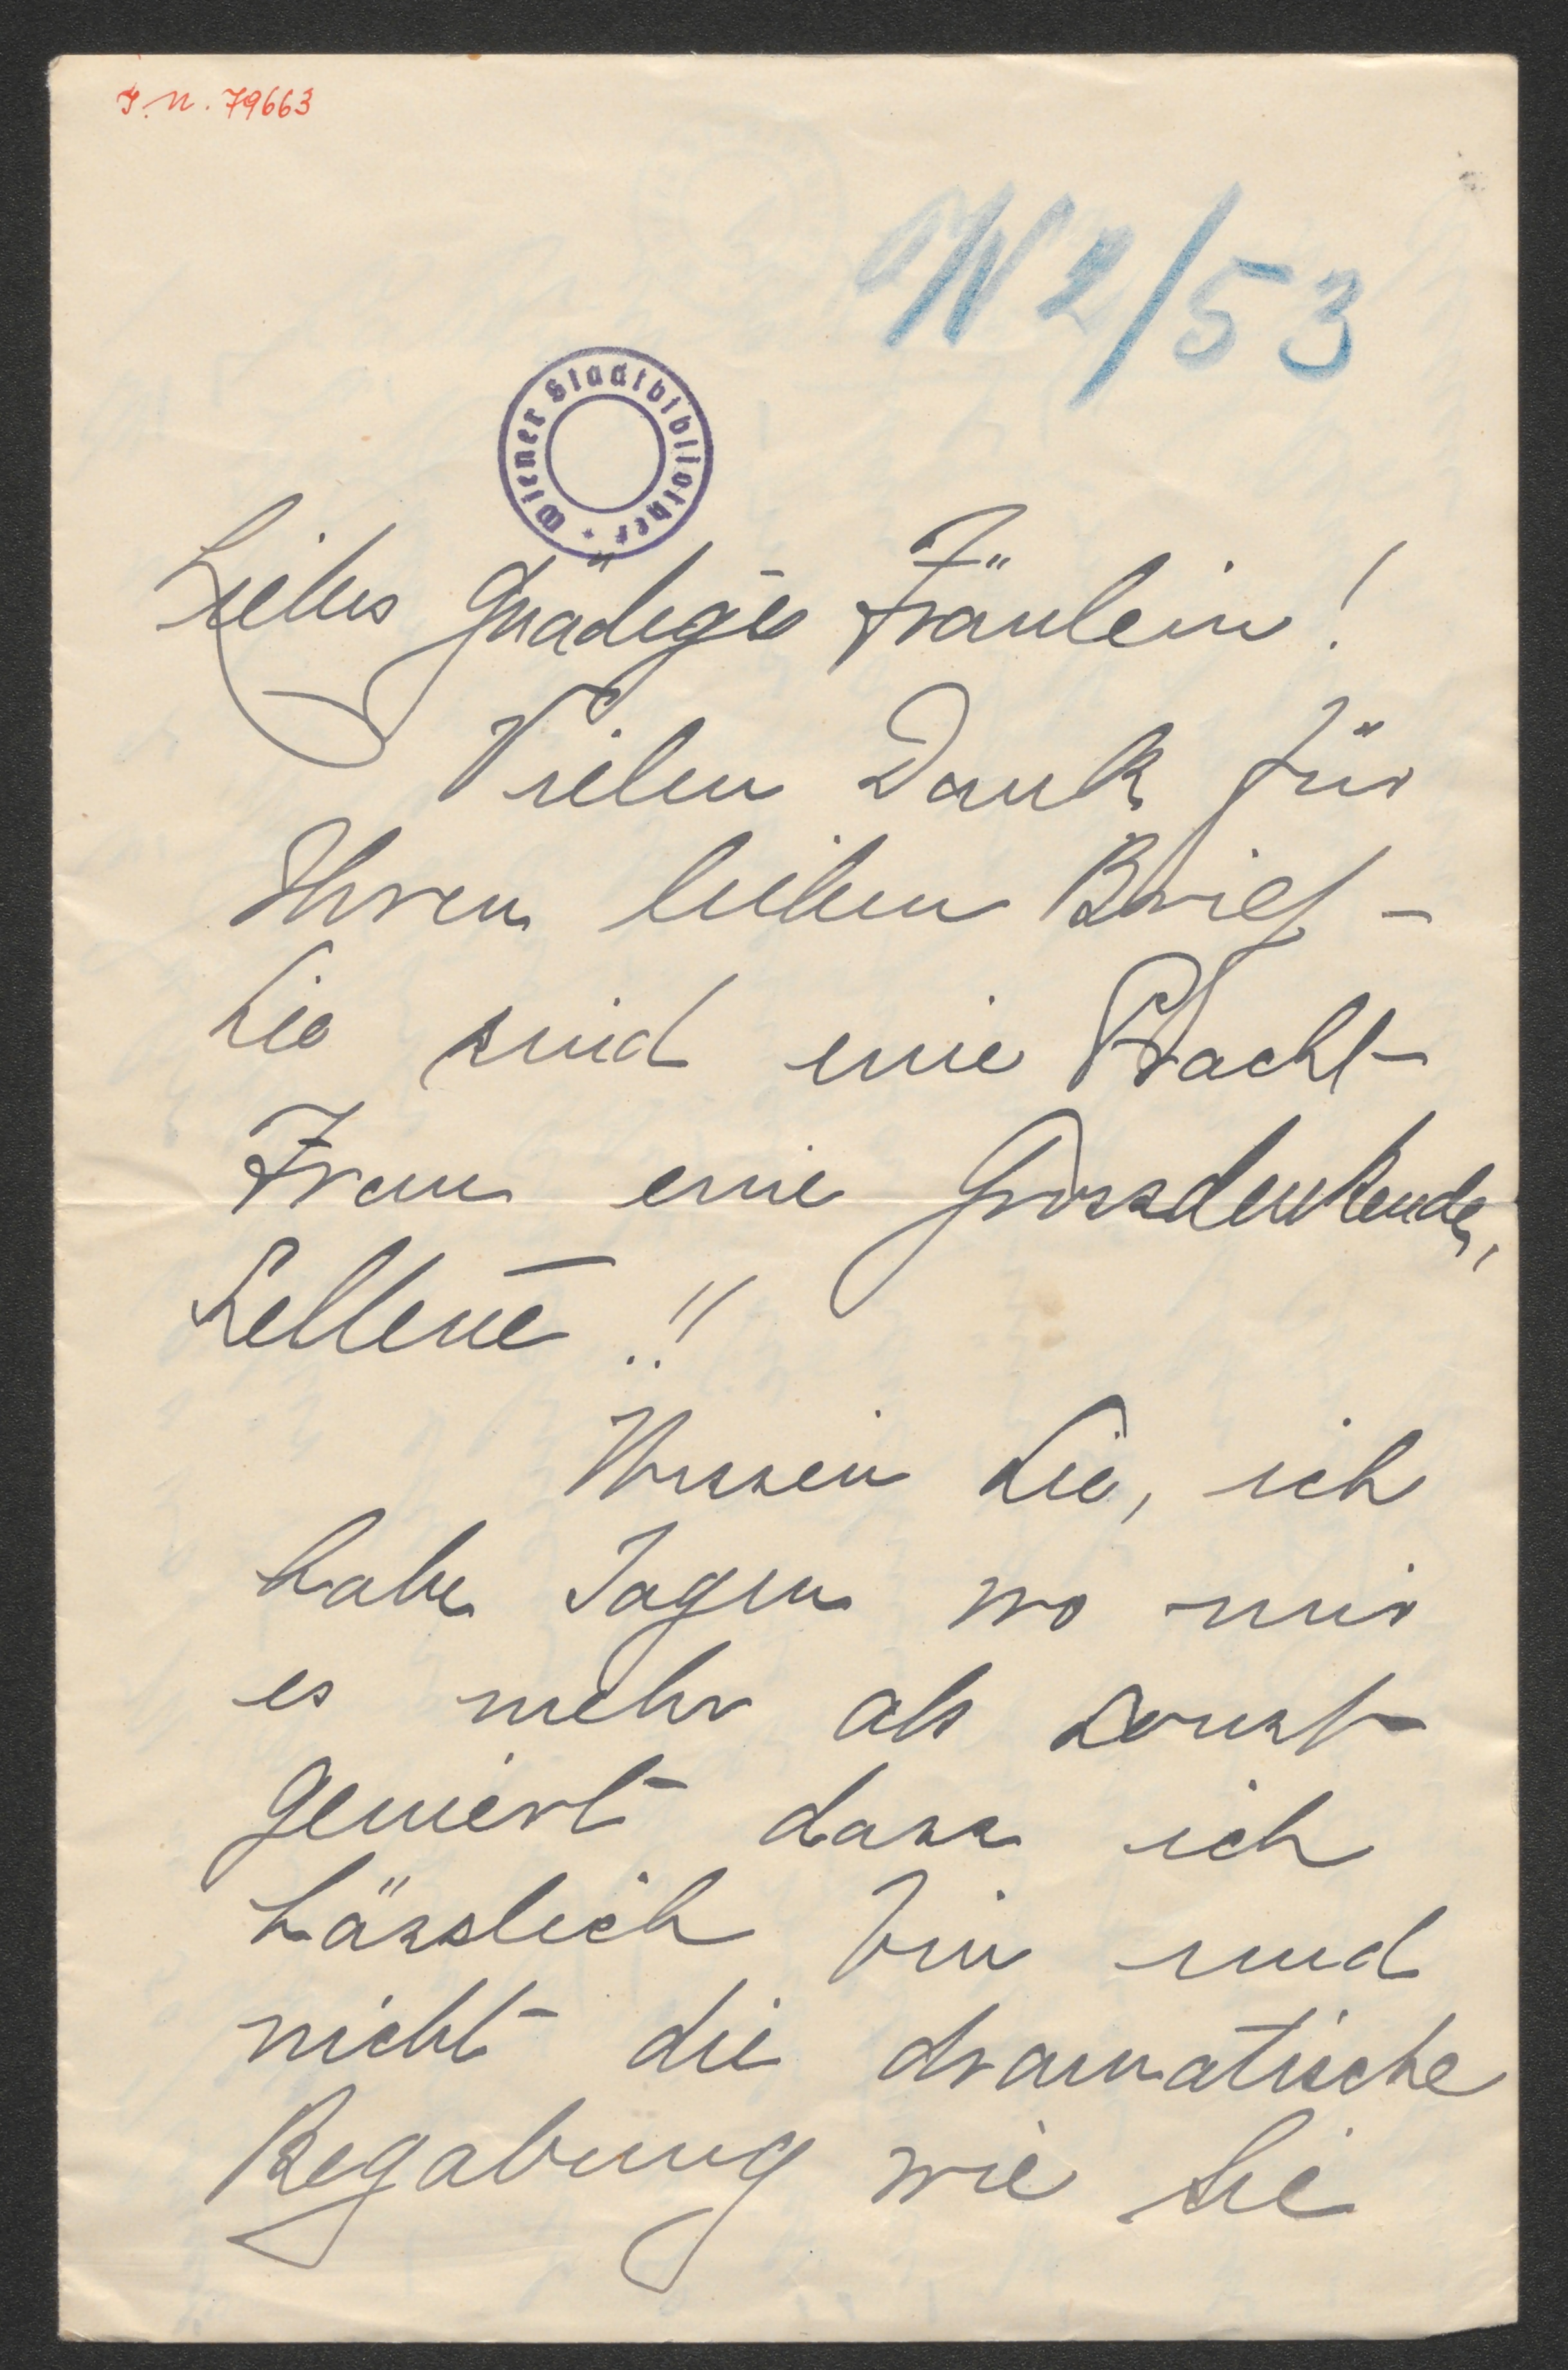 I.N. 79663
W 2/53
Wiener Stadtbibliothek *
Liebes Gnädiges Fräulein!
Vielen Dank für
Ihren lieben Brief -
Sie sind eine Pracht
Frau eine Grossdenkende,
Seltene !!
Wissen Sie, ich
habe Tagen wo mir
es mehr als sonst
geniert dass ich
hässlich bin und
nicht die dramatische
Begabung wie Sie